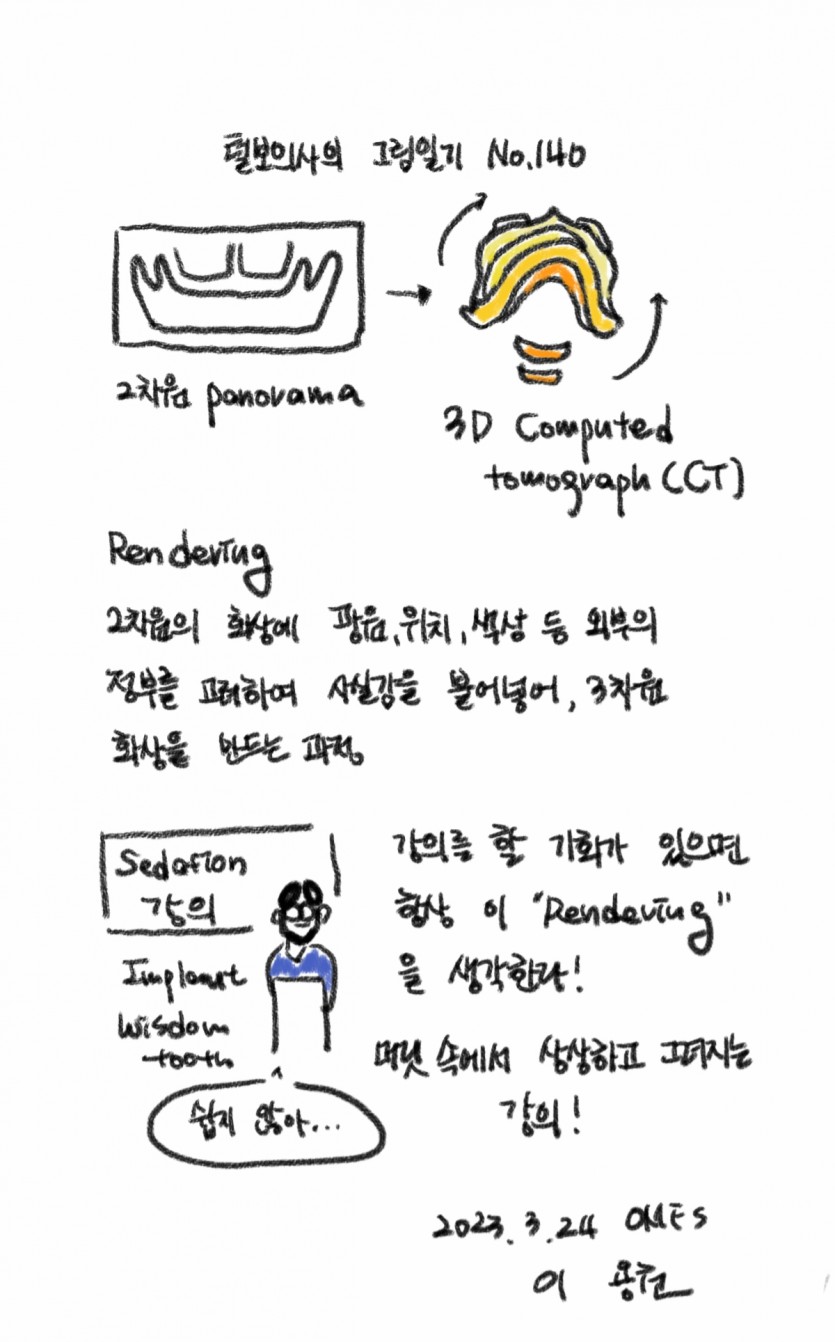 털보의사의 그림일기 No.140
2차원 panorama
3D Computed
tomograph (CT)
Rendering
2차원의 화상에 광원, 위치, 색상 등 외부의
정부를 고려하여 사실감을 불어넣어, 3차원
화상을 만드는 과정
Sedation
강의
Implant
Wisdom
tooth
쉽지 않아...
강의를 할 기회가 있으면
항상 이 "Rendering"
을 생각한다!
머릿속에서 상상하고 그려지는
강의!
2023.3.24 OMFS
이 용권